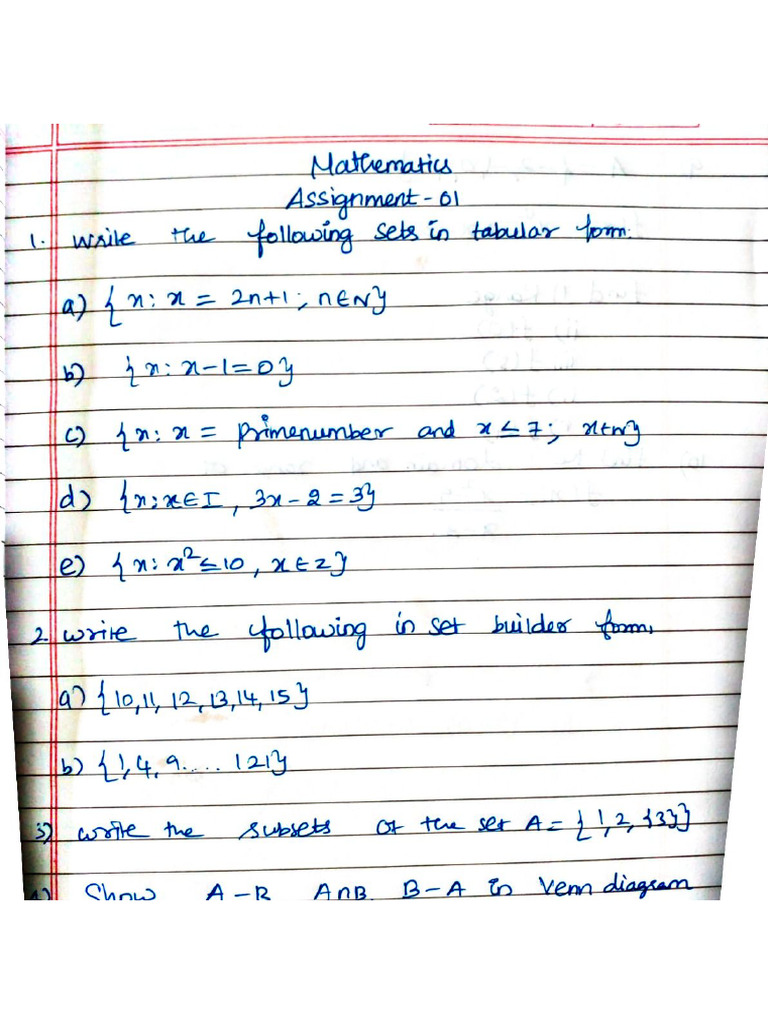 Mathematics
Assignment-01
1. Write the following sets in tabular form.
a) {x: x = 2n+1; n∈N}
b) {x: x-1=0}
c) {x: x = primenumber and x ≤ 7; x∈N}
d) {x:x∈I, 3x-2=3}
e) {x: x²≤10, x∈Z}
2. write the following in set builder form.
a) {10,11,12,13,14,15}
b) {1,4,9.... 121}
3) write the subsets of the set A = {1,2,{3}}
4) Show A-B, A∩B, B-A in Venn diagram